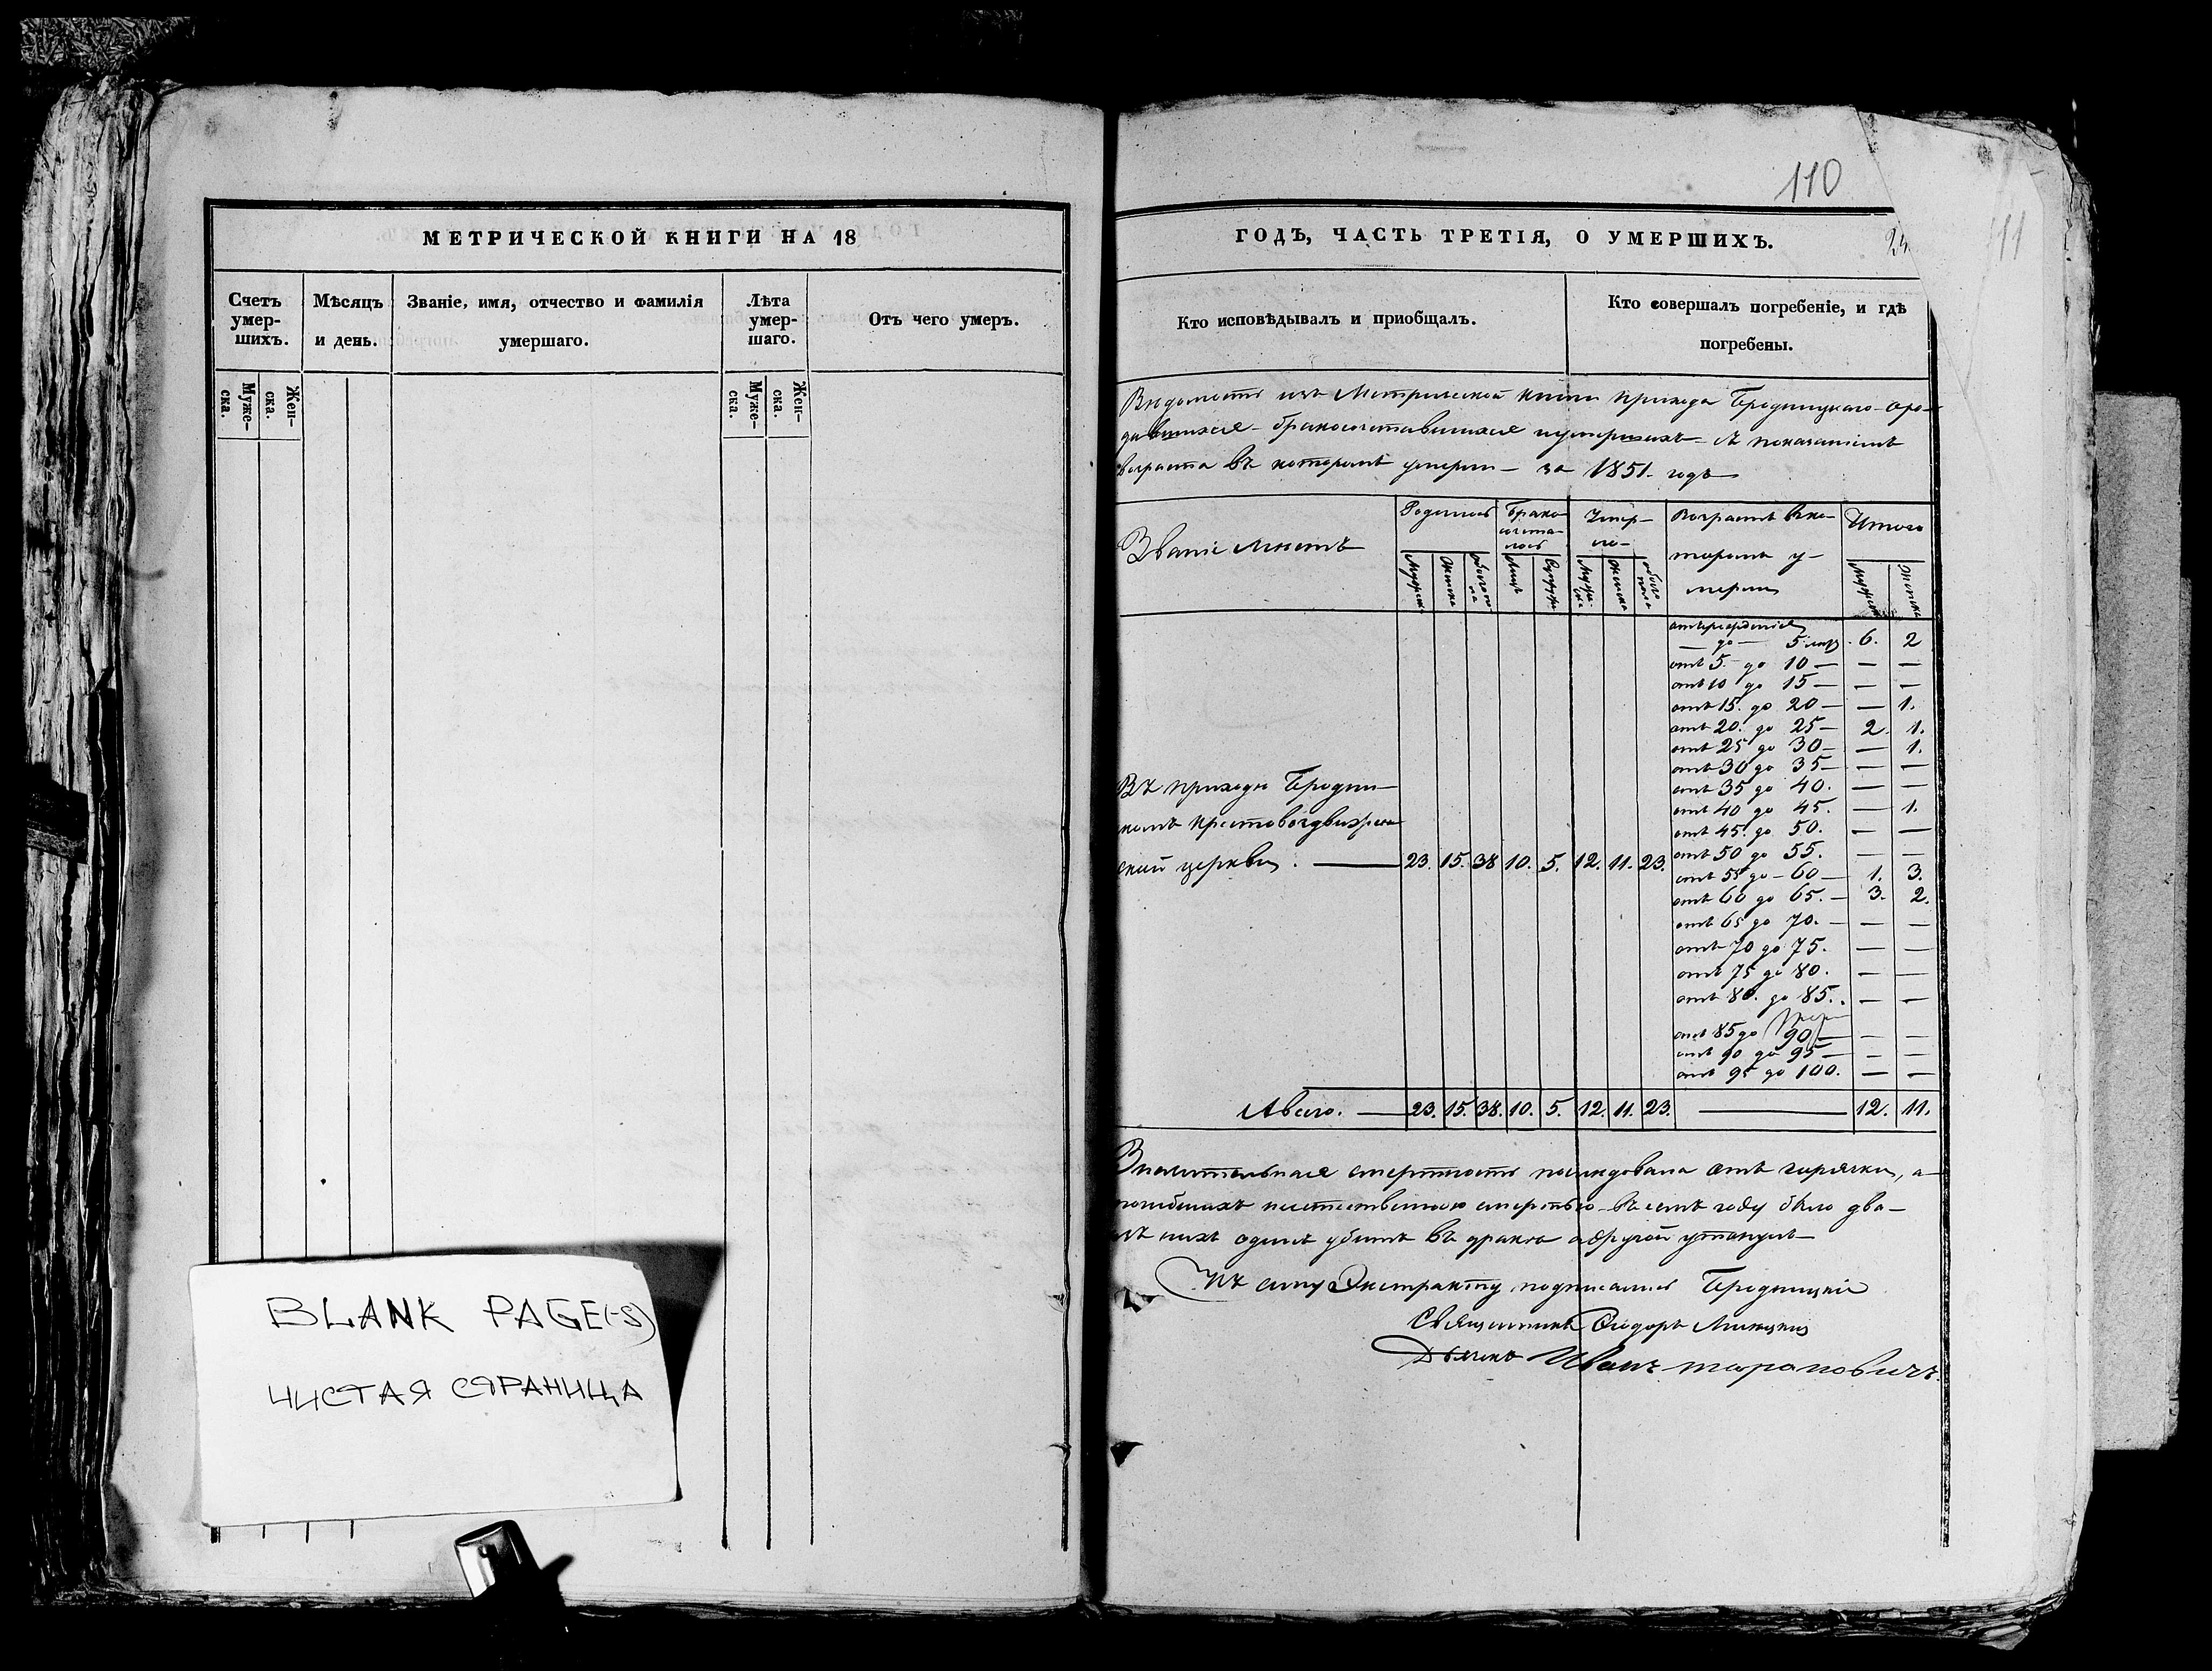 МЕТРИЧЕСКОЙ КНИГИ НА 18
Счетъ умер-шихъ.
Мѣсяцъ и день.
Званіе, имя, отчество и фамилія умершаго.
Лѣта умер-шаго.
Отъ чего умеръ.
Муже-ска.
Жен-ска.
Муже-ска.
Жен-ска.
BLANK PAGE(-S)
ЧИСТАЯ СТРАНИЦА
110
111
ГОДЪ, ЧАСТЬ ТРЕТІЯ, О УМЕРШИХЪ.
Кто исповѣдывалъ и пріобщалъ.
Кто совершалъ погребеніе, и гдѣ погребены.
Вѣдомость изъ Метрической книги прихода Бродницкаго о ро-
дившихся бракосочетавшихся и умершихъ съ показаніемъ
возраста въ которомъ умерли за 1851 годъ
Званіе мѣстъ
Родилось
Брако-сочета-лось
Умер-ло
Возрастъ въ ко-торомъ у-мерли
Итого
Мужска
Женска
обоего пола
Лицъ
Супруж.
Мужска
Женска
обоего пола
Мужска
Женска
отъ рожденія
до 5 лѣтъ 6. 2
отъ 5 до 10 — — —
отъ 10 до 15 — — —
отъ 15. до 20 — — 1.
отъ 20. до 25 — 2. 1.
отъ 25 до 30 — — 1.
отъ 30 до 35 — — —
отъ 35 до 40. — —
отъ 40 до 45. — 1.
отъ 45. до 50. — —
отъ 50 до 55. — —
отъ 55 до 60 — 1. 3.
отъ 60 до 65. — 3. 2.
отъ 65 до 70. — — —
отъ 70 до 75. — —
отъ 75 до 80. — —
отъ 80. до 85. — —
отъ 85 до 90 — — —
отъ 90 до 95 — — —
отъ 95 до 100. — —
Въ приходѣ Бродни-
комъ крестовоздвижен
ской церкви. — 23. 15. 38 10. 5. 12. 11. 23.
А всего. — 23. 15. 38. 10. 5. 12. 11. 23. — 12. 11.
Значительная смертность послѣдовала отъ горячки, а
погибшихъ неестественною смертью въ семъ году было два
изъ нихъ одинъ убитъ въ дракѣ а другой утонулъ
Къ сему Экстракту подписались Бродницкіе
Священникъ Ѳеодоръ
Дьячокъ Иванъ Тарановичъ.